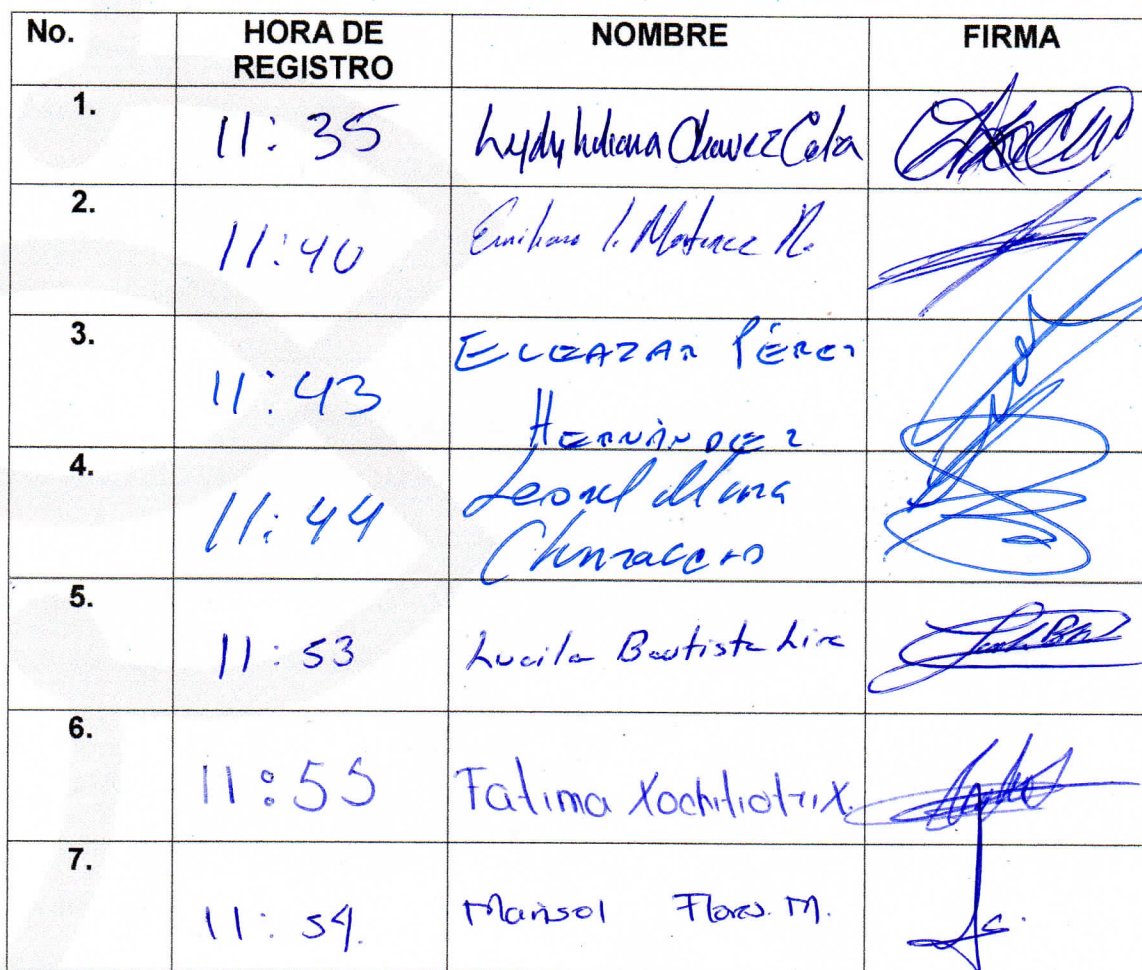 No. HORA DE REGISTRO NOMBRE FIRMA
1. 11:35 Lydy Chavez
2. 11:40 Emiliano I. Martinez R.
3. 11:43 ELEAZAR PÉREZ
HERNÁNDEZ
4. 11:44 Leonel
5. 11:53 Lucila Bautista Lira
6. 11:55 Fatima Xochitiotzi X.
7. 11:59. Marisol Flores. M.